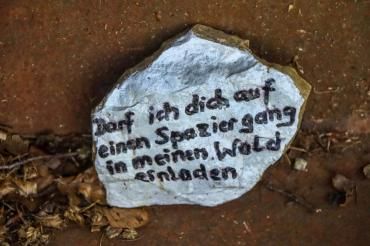 Darf ich dich auf
einen Spaziergang
in meinen Wald
einladen